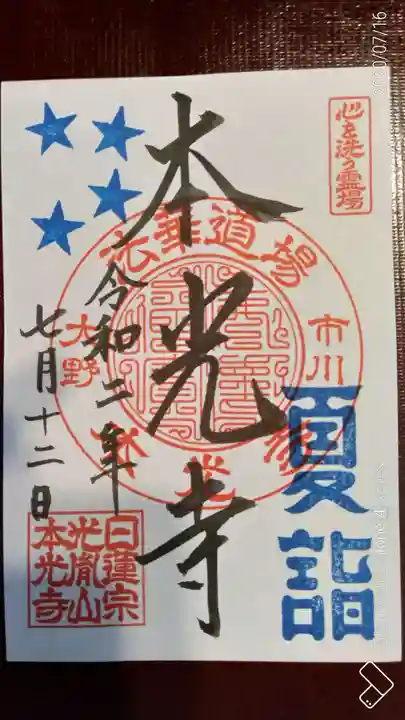 心を洗う霊場
本光寺
法華道場
市川
大野
令和二年
七月十二日
夏詣
日蓮宗
光胤山
本光寺
2020/07/16